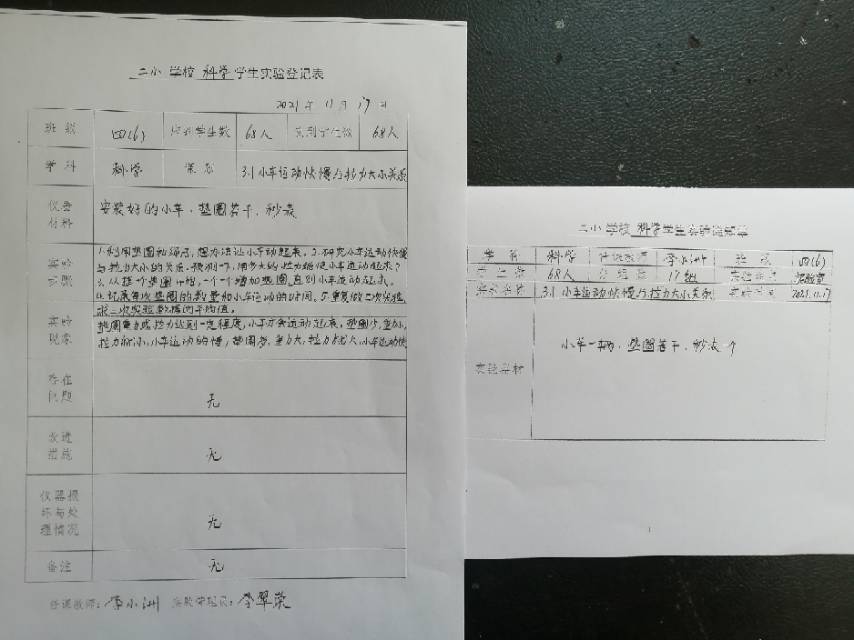 二小 学校 科学 学生实验登记表
2021 年 11 月 17 日
班级 四(6) 应到学生数 68人 实到学生数 68人
学科 科学 课题 3.1 小车运动快慢与拉力大小关系
仪器材料 安装好的小车、垫圈若干、秒表
实验步骤 1.利用垫圈和绳子,想办法让小车动起来。2.研究小车运动快慢
与拉力大小的关系。预测一下,用多大的拉力能使小车运动起来?
3.从挂一个垫圈开始,一个一个增加垫圈,直到小车运动起来。
4.记录每次垫圈的数量和小车运动的时间。5.重复做三次实验,
求三次实验数据的平均值。
实验现象 垫圈重力或拉力达到一定程度,小车才会运动起来。垫圈少,重力小,
拉力就小,小车运动的慢;垫圈多,重力大,拉力就大,小车运动快
存在问题 无
改进措施 无
仪器损坏与处理情况 无
备注 无
任课教师:李小洲 实验管理员:李翠荣
二小 学校 科学 学生实验通知单
学科 科学 任课教师 李小洲 班级 四(6)
68人 17组 实验室
实验名称 3.1 小车运动快慢与拉力大小关系 实验时间 2021.11.17
实验器材 小车一辆、垫圈若干、秒表一个